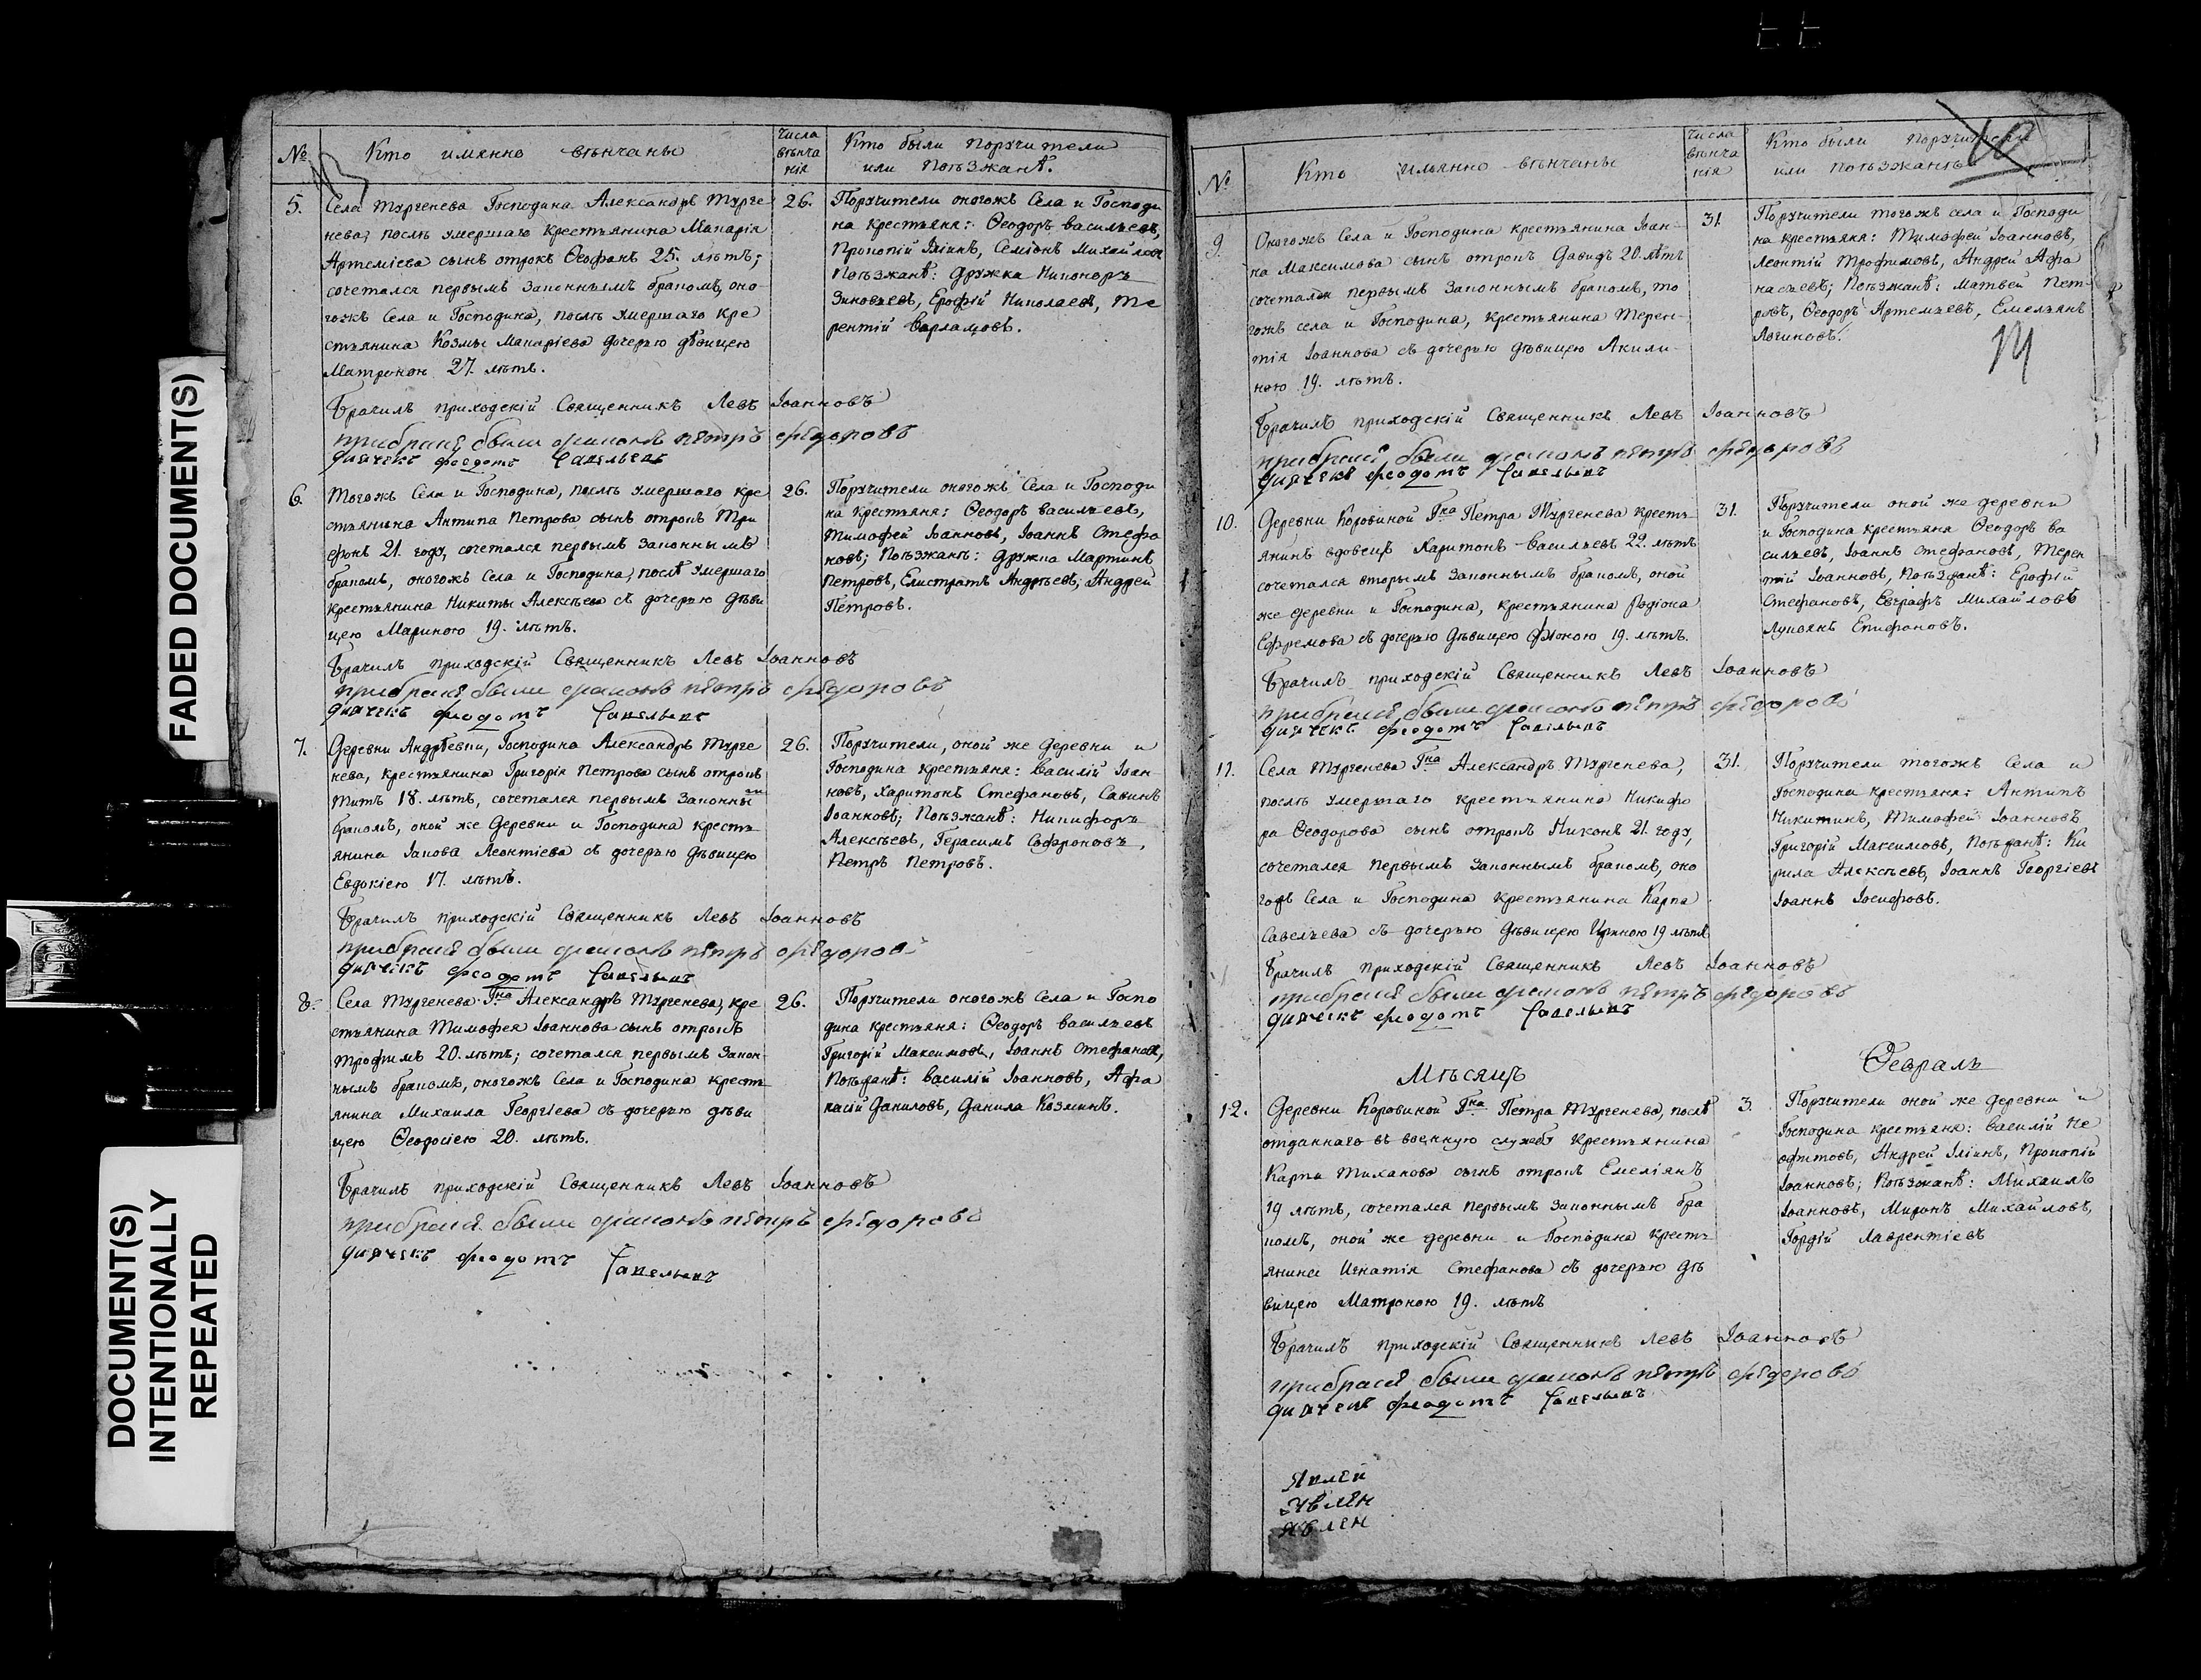 FADED DOCUMENT(S)
DOCUMENT(S)
INTENTIONALLY
REPEATED
№
Кто имянно вѣнчаны
Числа
вѣнча
нія
Кто были поручители
или поѣзжанѣ.
13
5.
Села Тургенева Господина Александръ Турге
нева, послѣ умершаго крестьянина Макарія
Артеміева сынъ отрокъ Ѳеофанъ 25. лѣтъ;
сочетался первымъ законнымъ бракомъ, оно-
гожъ Села и Господина, послѣ умершаго кре
стьянина Козмы Макаріева дочерью дѣвицею
Матроною 27. лѣтъ.
26.
Поручители оногожъ Села и Господи
на крестьяня: Ѳеодоръ васильевъ,
Прокопій Иліинъ, Семіонъ Михайловъ
Поѣзжанѣ: Дружка Никоноръ
Зиновьевъ, Ерофій Николаевъ, Те
рентій Варламовъ.
Брачилъ приходскій Священникъ Левъ Іоанновъ
при браке были диаконъ петръ фёдоровъ
дьячекъ феодотъ Савельевъ
6.
Тогожъ Села и Господина, послѣ умершаго кре
стьянина Антипа Петрова сынъ отрокъ Три
фонъ 21. году, сочетался первымъ законнымъ
бракомъ, оногожъ Села и Господина, послѣ умершаго
крестьянина Никиты Алексѣева съ дочерью дѣви
цею Мариною 19. лѣтъ.
26.
Поручители оногожъ Села и Господи
на крестьяня: Ѳеодоръ васильевъ,
Тимофей Іоанновъ, Іоаннъ Стефа
новъ; Поѣзжанѣ: Дружка Мартинъ
Петровъ, Елистратъ Андрѣевъ, Андрей
Петровъ.
Брачилъ приходскій Священникъ Левъ Іоанновъ
при браке были диаконъ петръ фёдоровъ
дьячекъ феодотъ Савельевъ
7.
Деревни Андрѣевки, Господина Александръ Турге
нева, крестьянина Григорія Петрова сынъ отрокъ
Титъ 18. лѣтъ, сочетался первымъ законны
мъ
бракомъ, оной же Деревни и Господина кресть
янина Іакова Леонтіева съ дочерью дѣвицею
Евдокіею 17. лѣтъ.
26.
Поручители, оной же Деревни и
Господина крестьяня: василій Іоан-
новъ, Харитонъ Стефановъ, Савинъ
Іоанновъ; Поѣзжанѣ: Никифоръ
Алексѣевъ, Герасимъ Софроновъ,
Петръ Петровъ.
Брачилъ приходскій Священникъ Левъ Іоанновъ
при браке были диаконъ петръ фёдоровъ
дьячекъ феодотъ Савельевъ
8.
Села Тургенева Гна Александръ Тургенева, кре
стьянина Тимофея Іоаннова сынъ отрокъ
Трофимъ 20. лѣтъ; сочетался первымъ закон-
нымъ бракомъ, оногожъ Села и Господина кресть
янина Михаила Георгіева съ дочерью дѣви
цею Ѳеодосіею 20. лѣтъ.
26.
Поручители оногожъ Села и Госпо
дина крестьяня: Ѳеодоръ васильевъ
Григорій Максимовъ, Іоаннъ Стефановъ,
Поѣзжанѣ: василій Іоанновъ, Афа
насій Даниловъ, Данила Козминъ.
Брачилъ приходскій Священникъ Левъ Іоанновъ
при браке были диаконъ петръ фёдоровъ
дьячекъ феодотъ
Савельевъ
№
Кто имянно вѣнчаны
Числа
вѣнча
нія
Кто были поручители
или поѣзжанѣ
10
14
9.
Оногожъ Села и Господина крестьянина Іоан-
на Максимова сынъ отрокъ Давидъ 20. лѣтъ
сочетался первымъ законнымъ бракомъ, то
гожъ села и Господина, крестьянина Терен-
тія Іоаннова съ дочерью дѣвицею Акили-
ною 19. лѣтъ.
31.
Поручители тогожъ села и Господи
на крестьяня: Тимофей Іоанновъ,
Леонтій Трофимовъ, Андрей Афа
насьевъ; Поѣзжанѣ: Матвей Пет-
ровъ, Ѳеодоръ Артемьевъ, Емельянъ
Логиновъ.
Брачилъ приходскій Священникъ Левъ Іоанновъ
при браке были диаконъ петръ фёдоровъ
дьячекъ феодотъ Савельевъ
10.
Деревни Коровиной Гна Петра Тургенева кресть-
янинъ вдовецъ Харитонъ Васильевъ 22. лѣтъ
сочетался вторымъ законнымъ бракомъ, оной
же деревни и Господина, крестьянина Родіона
Ефремова съ дочерью дѣвицею Феклою 19. лѣтъ.
31.
Поручители оной же деревни
и Господина крестьяня Ѳеодоръ ва
сильевъ, Іоаннъ Стефановъ, Терен
тій Іоанновъ, Поѣзжанѣ: Ерофій
Стефановъ, Евграфъ Михайловъ
Лукіанъ Епифановъ.
Брачилъ приходскій Священникъ Левъ Іоанновъ
при браке были диаконъ петръ фёдоровъ
дьячекъ феодотъ Савельевъ
11.
Села Тургенева Гна Александръ Тургенева,
послѣ умершаго крестьянина Никифо
ра Ѳеодорова сынъ отрокъ Никонъ 21. году,
сочетался первымъ законнымъ бракомъ, оно
гожъ Села и Господина крестьянина Карпа
Савельева съ дочерью дѣвицею Ириною 19 лѣтъ
31.
Поручители тогожъ Села и
Господина крестьяня: Антипъ
Никитинъ, Тимофей Іоанновъ
Григорій Максимовъ, Поѣзжанѣ: Ки
рила Алексѣевъ, Іоаннъ Георгіевъ
Іоаннъ Іосифовъ.
Брачилъ приходскій Священникъ Левъ Іоанновъ
при браке были диаконъ петръ фёдоровъ
дьячекъ феодотъ Савельевъ
Мѣсяцъ
Февраль
12.
Деревни Коровиной Гна Петра Тургенева, послѣ
отданнаго въ военную службу крестьянина
Карпа Тиханова сынъ отрокъ Емеліанъ
19 лѣтъ, сочетался первымъ законнымъ бра
комъ, оной же деревни и Господина кресть
янина Игнатія Стефанова съ дочерью дѣ
вицею Матроною 19. лѣтъ
3.
Поручители оной же деревни и
Господина крестьяня: василій Не
офитовъ, Андрей Иліинъ, Прокопій
Іоанновъ; Поѣзжанѣ: Михаилъ
Іоанновъ, Миронъ Михайловъ,
Гордій Лаврентіевъ
Брачилъ приходскій Священникъ Левъ Іоанновъ
при браке были диаконъ петръ фёдоровъ
дьячекъ феодотъ Савельевъ